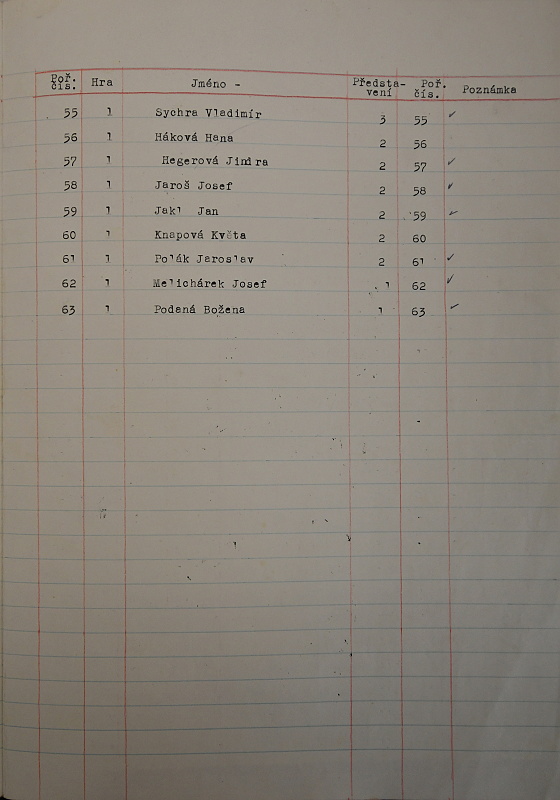 Poř. čís. Hra Jméno - Představení Poř. čís. Poznámka
55 1 Sychra Vladimír 3 55 ✓
56 1 Háková Hana 2 56
57 1 Hegerová Jiřira 2 57 ✓
58 1 Jaroš Josef 2 58 ✓
59 1 Jakl Jan 2 59 ✓
60 1 Knapová Květa 2 60
61 1 Polák Jaroslav 2 61 ✓
62 1 Melichárek Josef 1 62 ✓
63 1 Podaná Božena 1 63 ✓